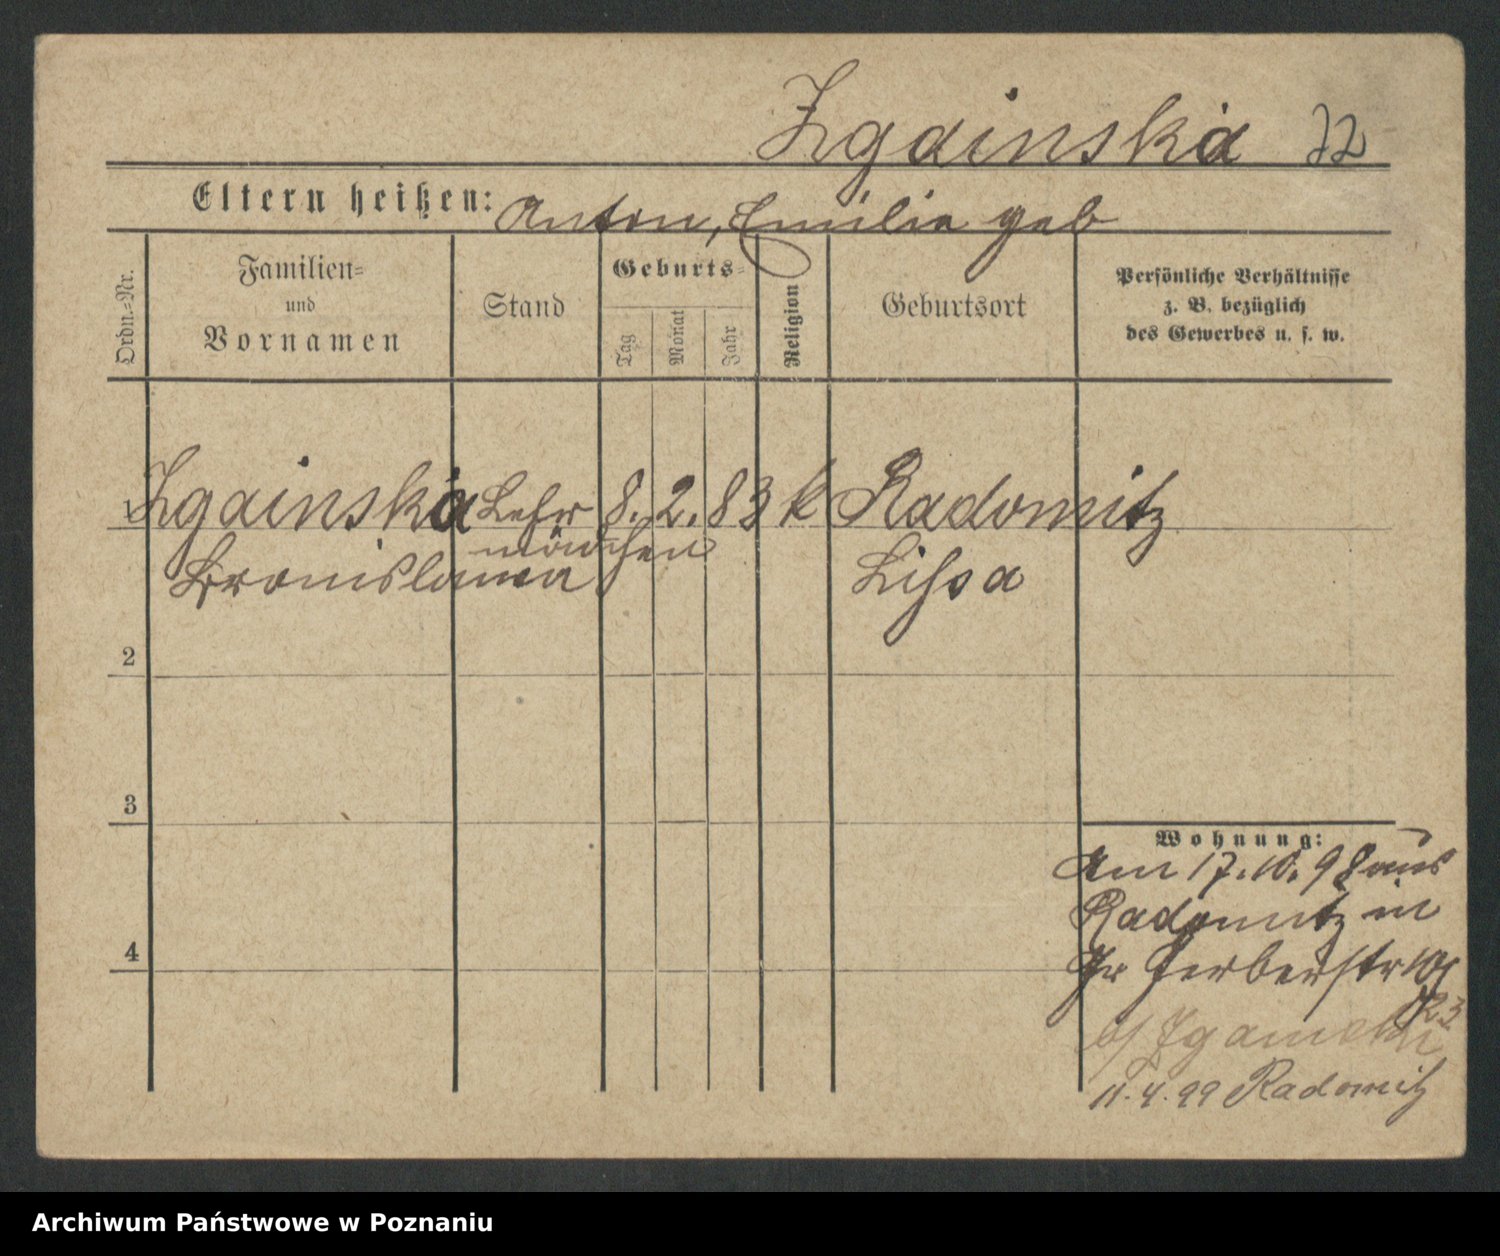 Zgainska 72
Eltern heißen: Anton, Emilie geb
Ordn.=Nr.
Familien=
und
Vornamen
Stand
Geburts=
Tag
Monat
Jahr
Religion
Geburtsort
Persönliche Verhältnisse
z. B. bezüglich
des Gewerbes u. s. w.
1 Zgainska Lehr 8. 2. 83 k Radomitz
mädchen
Bronislawa Lissa
2
3
4
Wohnung:
Am 17.10.98 aus
Radomitz in
Gr Gerberstr
b/ Zgainski
11.4.99 Radomitz
Archiwum Państwowe w Poznaniu